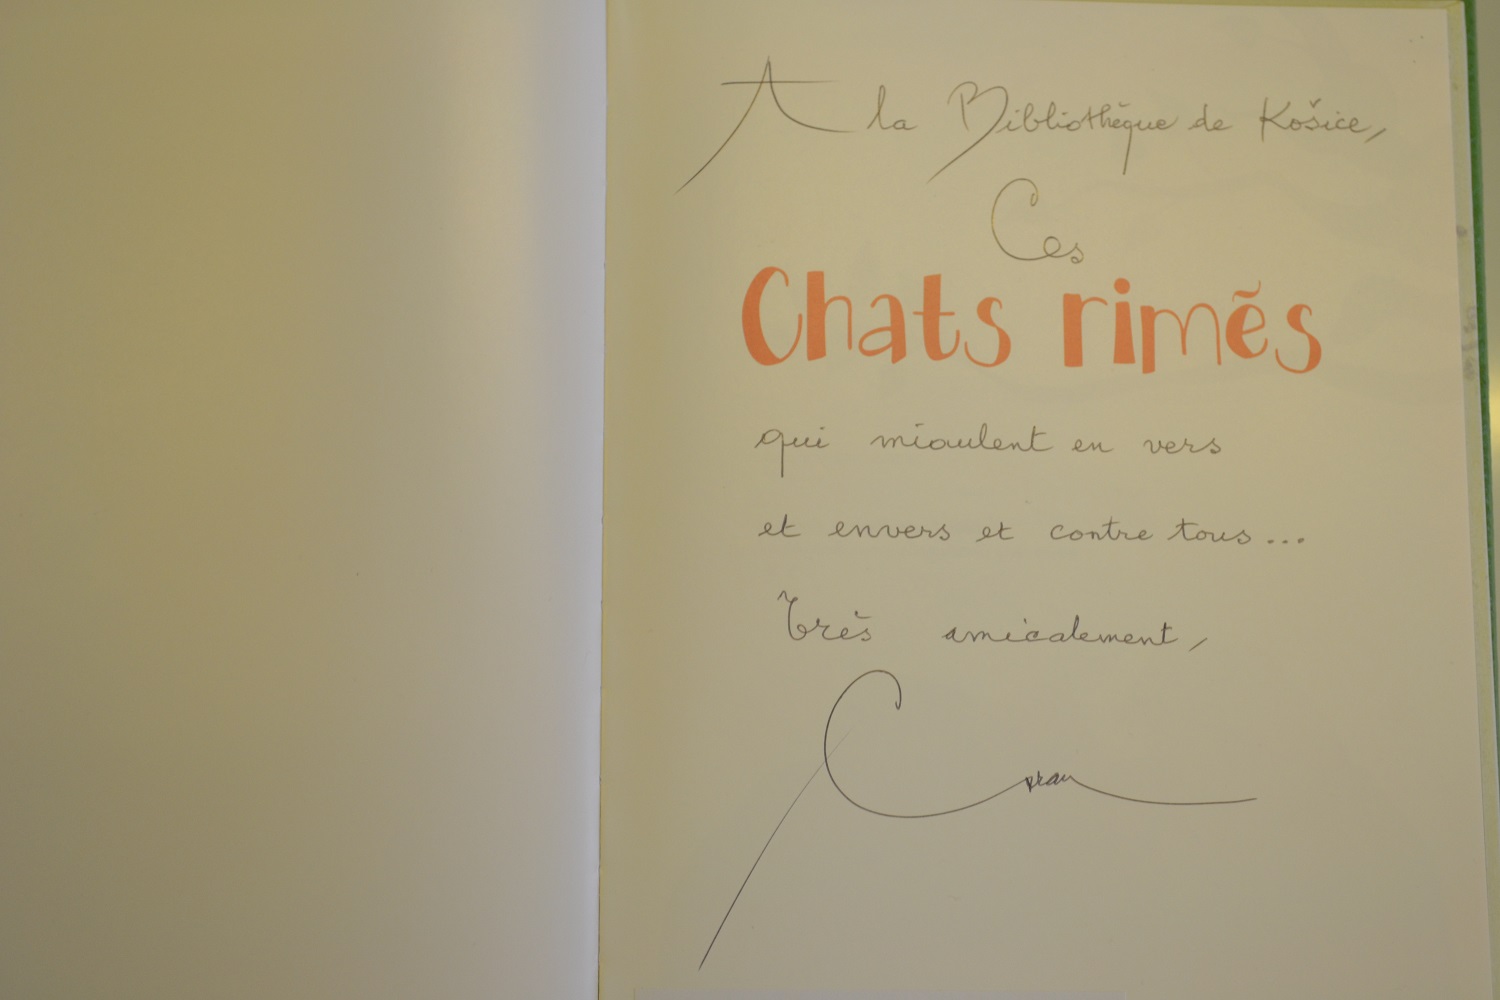 A la Bibliothèque de Košice,
Ces
Chats rimés
qui miaulent en vers
et envers et contre tous...
Très amicalement,